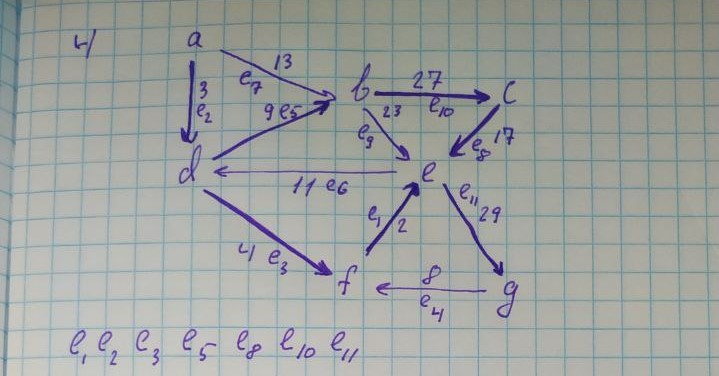 4)
a
13
e7
b
27
e10
c
3
e2
9 e5
23
e9
e8 17
d
11 e6
e
e11
29
e1
2
4 e3
f
8
e4
g
e1 e2 e3 e5 e8 e10 e11